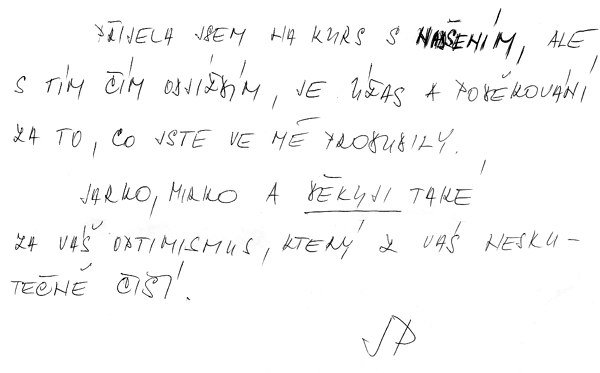 PŘIJELA JSEM NA KURS S NADŠENÍM, ALE
S TÍM ČÍM ODJÍŽDÍM, JE ÚŽAS A PODĚKOVÁNÍ
ZA TO, CO JSTE VE MĚ PROBUDILY.
JARKO, MIRKO A DĚKUJI TAKÉ
ZA VÁŠ OPTIMISMUS, KTERÝ Z VÁS NESKU-
TEČNĚ ČIŠÍ.